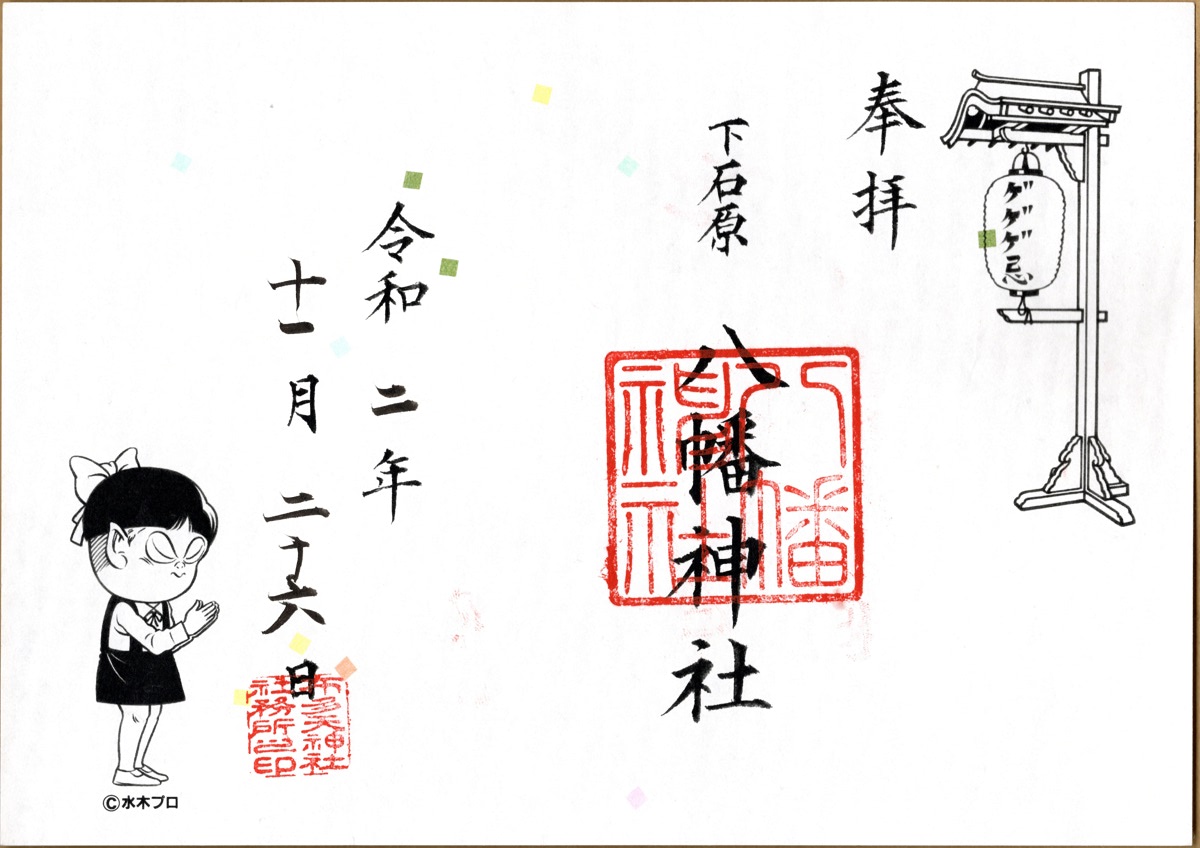 ゲゲゲ忌
奉拝
下石原
八幡神社
八幡
神社
令和二年
十一月二十六日
布多天神社
社務所之印
©水木プロ